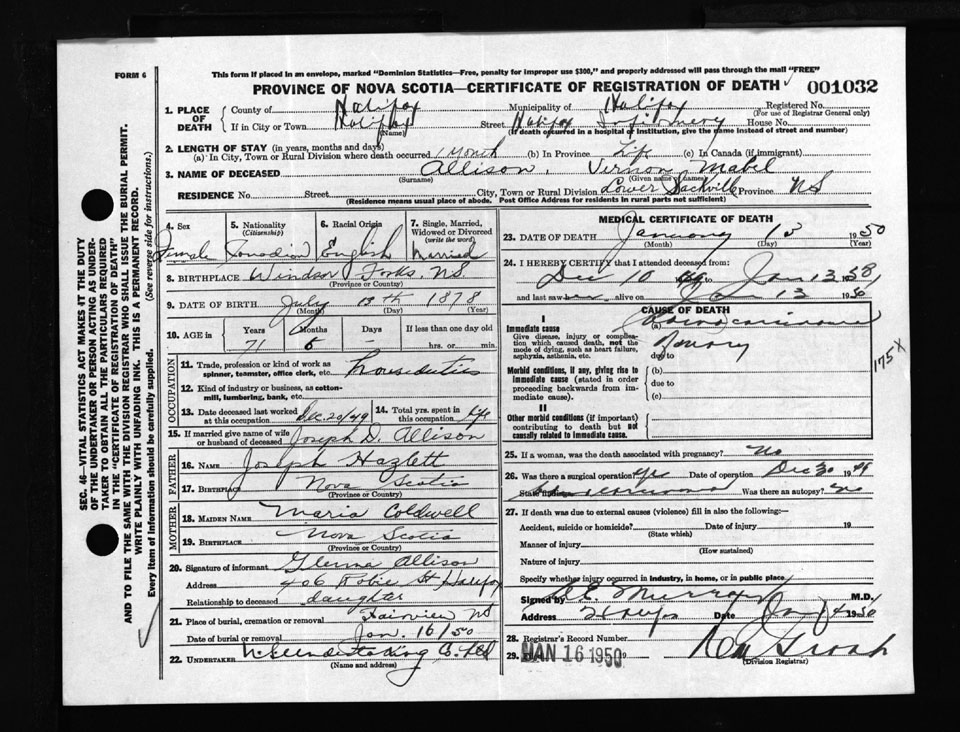 FORM 6
This form if placed in an envelope, marked "Dominion Statistics—Free, penalty for improper use $300," and properly addressed will pass through the mail "FREE"
PROVINCE OF NOVA SCOTIA—CERTIFICATE OF REGISTRATION OF DEATH 001032
1. PLACE OF DEATH County of Halifax Municipality of Halifax Registered No.
(For use of Registrar General only)
If in City or Town Halifax Street Halifax Infirmary House No.
(Name) (If death occurred in a hospital or institution, give the name instead of street and number)
2. LENGTH OF STAY (in years, months and days)
(a) In City, Town or Rural Division where death occurred 1 Month (b) In Province Life (c) In Canada (if immigrant)
3. NAME OF DECEASED Allison, Vernon Mabel
(Surname) (Given name or names)
RESIDENCE No. Street City, Town or Rural Division Lower Sackville Province NS
(Residence means usual place of abode. Post Office Address for residents in rural parts not sufficient)
4. Sex Female
5. Nationality (Citizenship) Canadian
6. Racial Origin English
7. Single, Married, Widowed or Divorced (write the word) Married
8. BIRTHPLACE Windsor Forks, NS.
(Province or Country)
9. DATE OF BIRTH July 13th 1878
(Month) (Day) (Year)
10. AGE in Years Months Days If less than one day old
71 6 - hrs. or min.
OCCUPATION
11. Trade, profession or kind of work as spinner, teamster, office clerk, etc. House duties
12. Kind of industry or business, as cotton-mill, lumbering, bank, etc.
13. Date deceased last worked at this occupation Dec. 20/49 14. Total yrs. spent in this occupation Life
15. If married give name of wife or husband of deceased Joseph D. Allison
FATHER
16. NAME Joseph Hazlett
17. BIRTHPLACE Nova Scotia
(Province or Country)
MOTHER
18. MAIDEN NAME Maria Coldwell
19. BIRTHPLACE Nova Scotia
(Province or Country)
20. Signature of informant Glenna Allison
Address 406 Robie St Halifax
Relationship to deceased daughter
21. Place of burial, cremation or removal Fairview NS
Date of burial or removal Jan. 16/50
22. UNDERTAKER Undertaking Co. Ltd
(Name and address)
MEDICAL CERTIFICATE OF DEATH
23. DATE OF DEATH January 13 1950
(Month) (Day) (Year)
24. I HEREBY CERTIFY that I attended deceased from:
Dec 10 49 to Jan 13 19
and last saw her alive on Jan 13 1950
CAUSE OF DEATH
I
Immediate cause
Give disease, injury or complication which caused death, not the mode of dying, such as heart failure, asphyxia, asthenia, etc.
(a)
due to
Morbid conditions, if any, giving rise to immediate cause (stated in order proceeding backwards from immediate cause).
(b)
due to
(c)
II
Other morbid conditions (if important) contributing to death but not causally related to immediate cause.
175 X
25. If a woman, was the death associated with pregnancy? No
26. Was there a surgical operation? Yes Date of operation Dec 30 1949
State findings Was there an autopsy? No
27. If death was due to external causes (violence) fill in also the following:—
Accident, suicide or homicide? Date of injury 19
(State which)
Manner of injury
(How sustained)
Nature of injury
Specify whether injury occurred in industry, in home, or in public place
Signed by Murray M.D.
Address Halifax Date Jan 14 1950
28. Registrar's Record Number
29. JAN 16 1950
(Division Registrar)
SEC. 46—VITAL STATISTICS ACT MAKES IT THE DUTY
OF THE UNDERTAKER OR PERSON ACTING AS UNDER-
TAKER TO OBTAIN ALL THE PARTICULARS REQUIRED
IN THE "CERTIFICATE OF REGISTRATION OF DEATH"
AND TO FILE THE SAME WITH THE DIVISION REGISTRAR WHO SHALL ISSUE THE BURIAL PERMIT.
WRITE PLAINLY WITH UNFADING INK. THIS IS A PERMANENT RECORD.
Every item of Information should be carefully supplied. (See reverse side for instructions.)